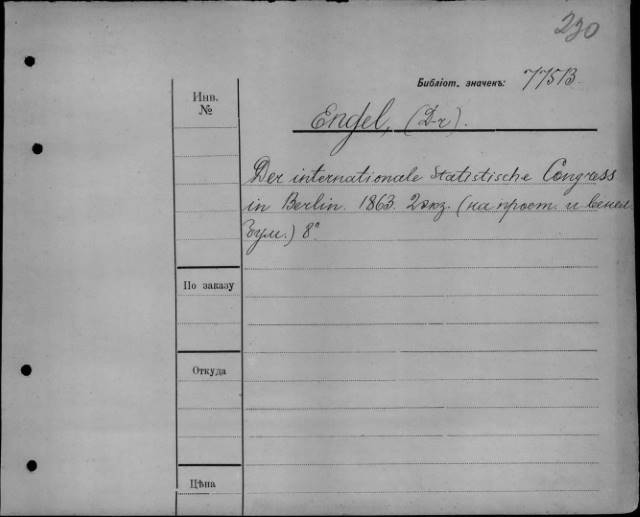 230
Библіот. значекъ: 775B
Инв.
№
Engel, (Dr).
Der internationale Statistische Congress
in Berlin. 1863. 2 экз. (на прост. и велен.
бум.) 8°
По заказу
Откуда
Цѣна